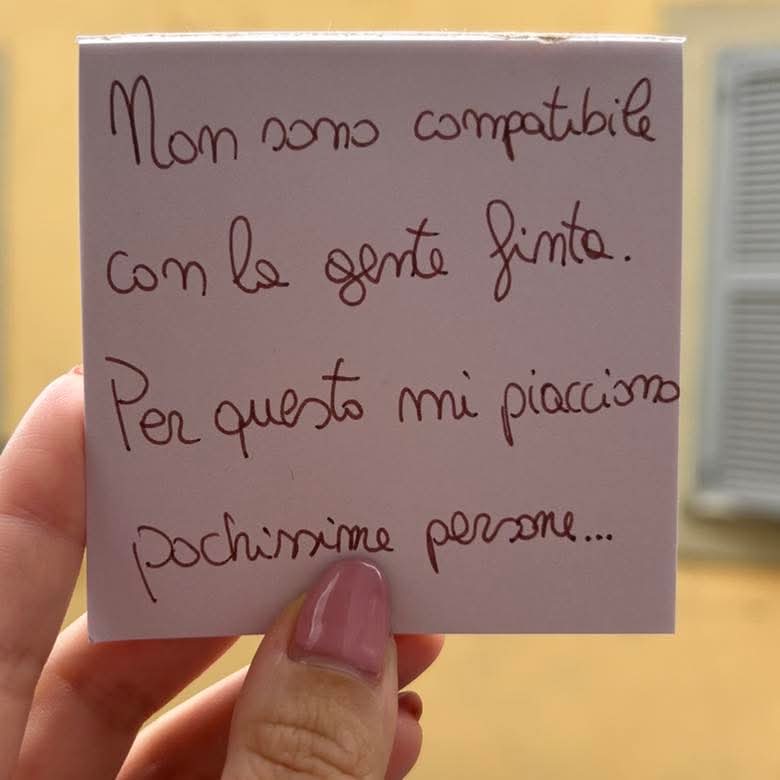 Non sono compatibile
con la gente finta.
Per questo mi piacciono
pochissime persone...